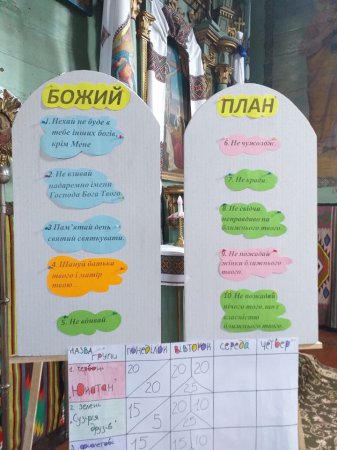 БОЖИЙ
1. Нехай не буде в
тебе інших богів,
крім Мене
2. Не взивай
надаремно імени
Господа Бога Твого.
3.Пам'ятай день
святий святкувати.
4. Шануй батька
твого і матір
твою...
5. Не вбивай.
ПЛАН
6. Не чужолож.
7. Не кради.
8. Не свідчи
неправдиво на
ближнього твого.
9. Не пожадай
жінки ближнього
твого.
10. Не пожадай
нічого того, що є
власністю
ближнього твого.
НАЗВА ГРУПИ ПОНЕДІЛОК ВІВТОРОК СЕРЕДА ЧЕТВЕР
1. червоні 20 20 20
20 25
2. зелені 15 20 10
"Сузір'я
друзів" 5 25
3. 15 15 10